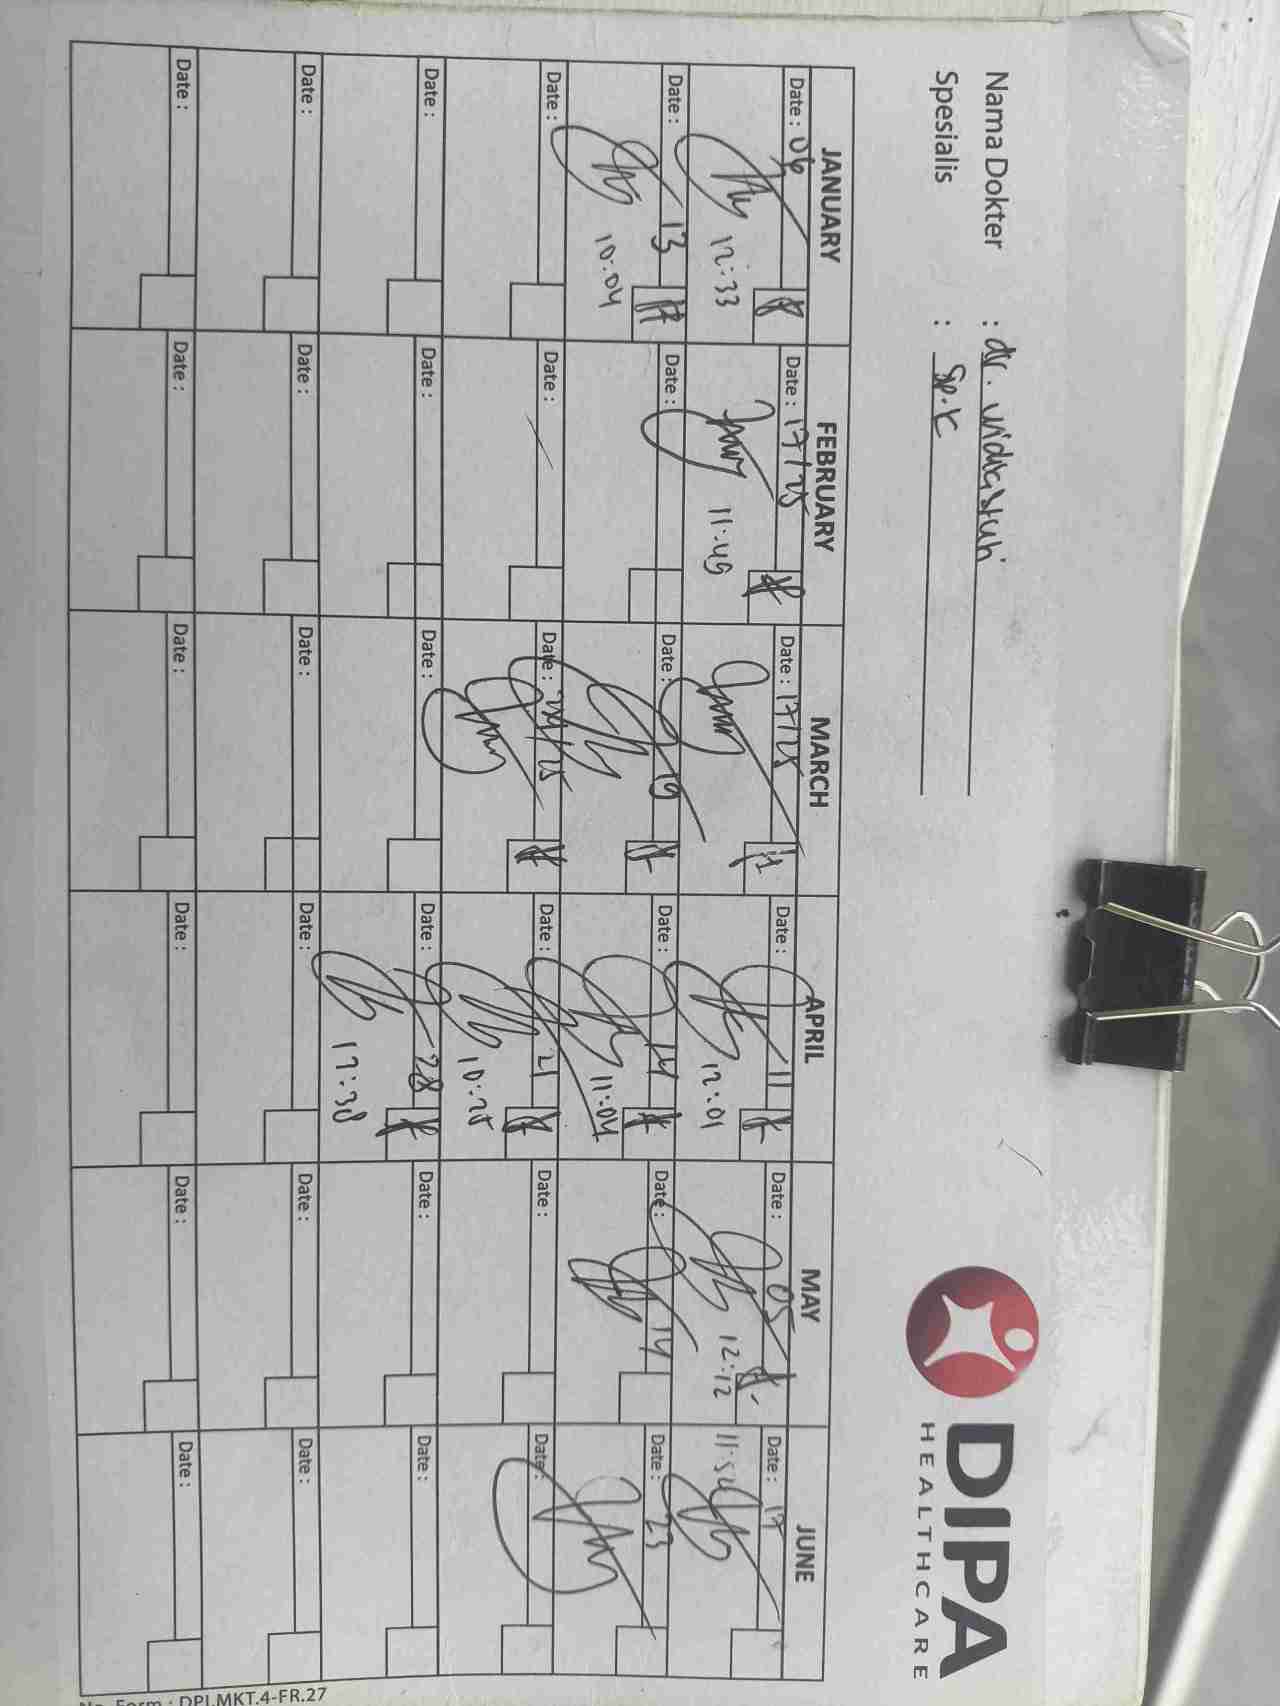 Nama Dokter : dr. Widiastuti
Spesialis : Sp.K
DIPA
HEALTHCARE
JANUARY FEBRUARY MARCH APRIL MAY JUNE
Date : 06 Date : 17/25 Date : 17/25 Date : 11 Date : 05 Date : 17
12:33 11:49 12:01 12:12
Date : 13 Date : Date : 19 Date : 14 Date : 14 Date : 23
10:04 11:04
Date : Date : Date : Date : 21 Date : Date :
10:25
Date : Date : Date : Date : 28 Date : Date :
Date : Date : Date : Date : Date : Date :
Date : Date : Date : Date : Date : Date :
No. Form : DPI.MKT.4-FR.27